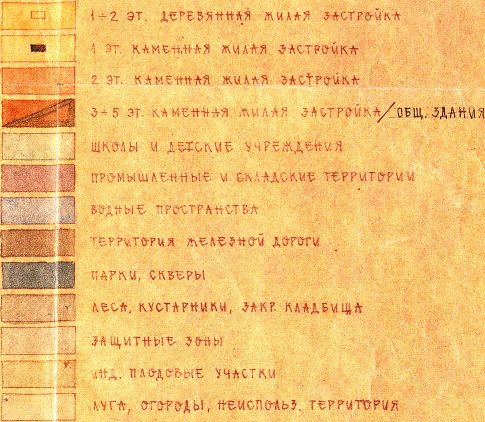 1÷2 ЭТ. ДЕРЕВЯННАЯ ЖИЛАЯ ЗАСТРОЙКА
1 ЭТ. КАМЕННАЯ ЖИЛАЯ ЗАСТРОЙКА
2 ЭТ. КАМЕННАЯ ЖИЛАЯ ЗАСТРОЙКА
3÷5 ЭТ. КАМЕННАЯ ЖИЛАЯ ЗАСТРОЙКА/ОБЩ. ЗДАНИЯ
ШКОЛЫ И ДЕТСКИЕ УЧРЕЖДЕНИЯ
ПРОМЫШЛЕННЫЕ И СКЛАДСКИЕ ТЕРРИТОРИИ
ВОДНЫЕ ПРОСТРАНСТВА
ТЕРРИТОРИЯ ЖЕЛЕЗНОЙ ДОРОГИ
ПАРКИ, СКВЕРЫ
ЛЕСА, КУСТАРНИКИ, ЗАКР. КЛАДБИЩА
ЗАЩИТНЫЕ ЗОНЫ
ИНД. ПЛОДОВЫЕ УЧАСТКИ
ЛУГА, ОГОРОДЫ, НЕИСПОЛЬЗ. ТЕРРИТОРИЯ